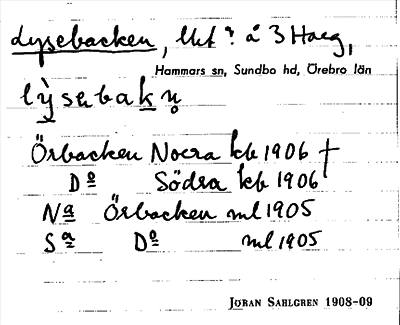 Lysebacken, Utf? å 3 Haeg,
Hammars sn, Sundbo hd, Örebro län
lỳsebakn̥
Örbacken Norra kb 1906 †
Dº Södra kb 1906
Nª Örbacken ml 1905
Sª Dº ml 1905
JÖRAN SAHLGREN 1908-09